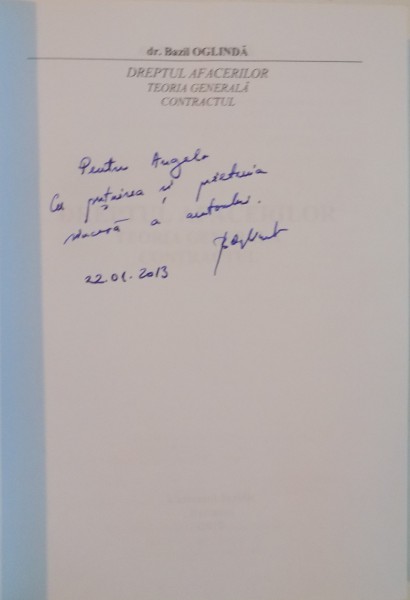 dr. Bazil OGLINDĂ
DREPTUL AFACERILOR
TEORIA GENERALĂ
CONTRACTUL
Pentru Angela
Cu prețuirea și prietenia
sinceră a autorului.
22.01.2013